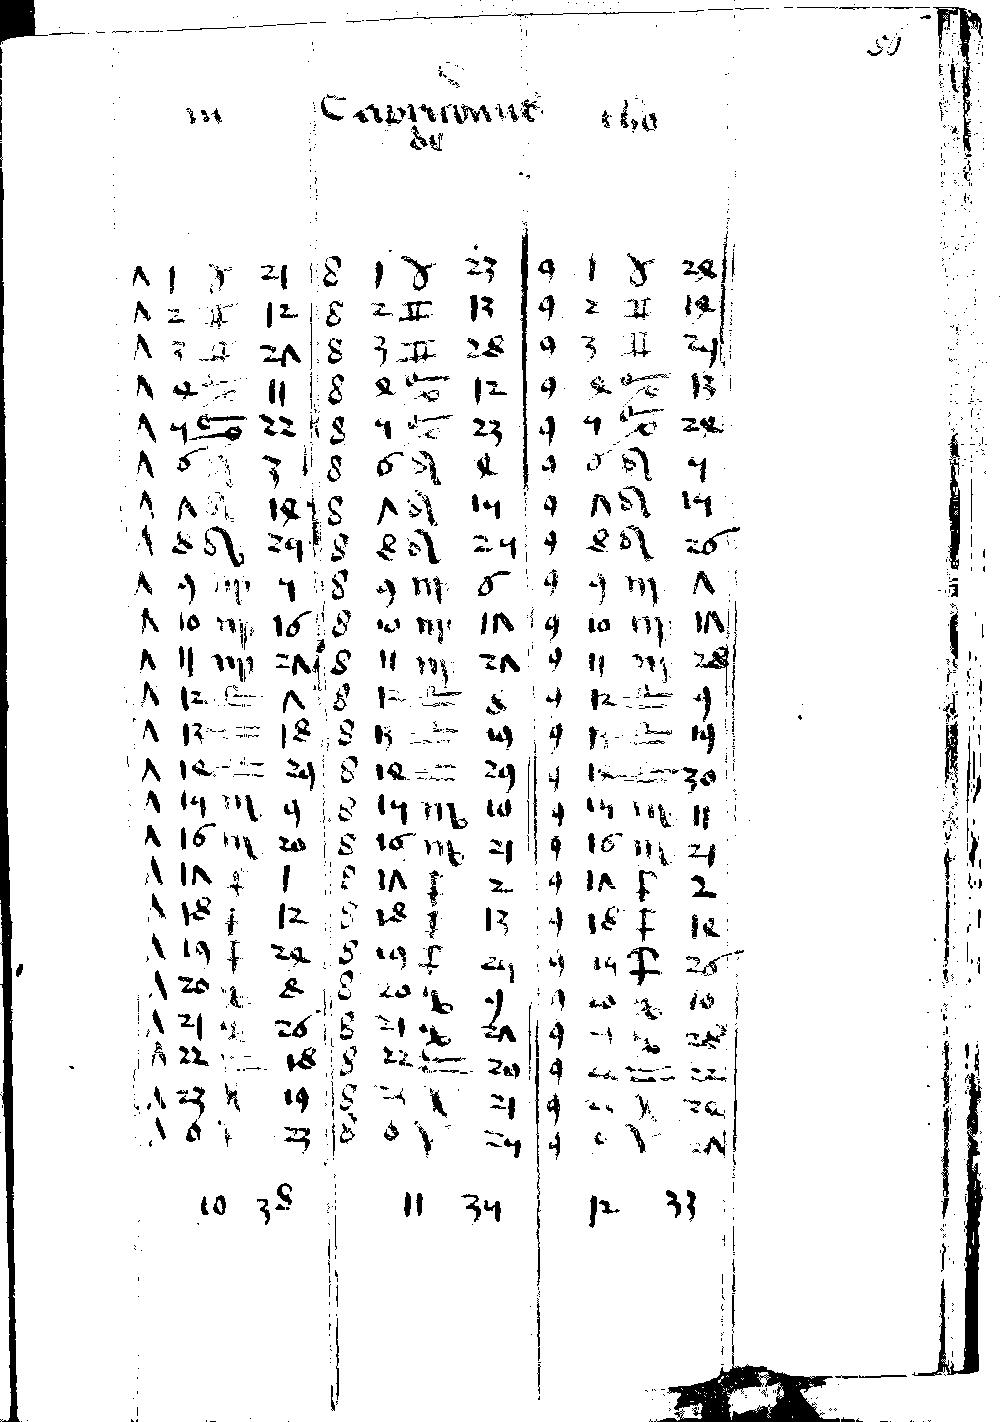 50
in Capricornus tho
de
7 1 ♉ 21 8 1 ♉ 23 9 1 ♉ 24
7 2 ♊ 12 8 2 ♊ 13 9 2 ♊ 14
7 3 ♊ 27 8 3 ♊ 28 9 3 ♊ 29
7 4 ♋ 11 8 4 ♋ 12 9 4 ♋ 13
7 5 ♋ 22 8 5 ♋ 23 9 5 ♋ 24
7 6 ♌ 3 8 6 ♌ 4 9 6 ♌ 5
7 7 ♌ 14 8 7 ♌ 15 9 7 ♌ 15
7 8 ♌ 25 8 8 ♌ 25 9 8 ♌ 26
7 9 ♍ 5 8 9 ♍ 6 9 9 ♍ 7
7 10 ♍ 16 8 10 ♍ 17 9 10 ♍ 17
7 11 ♍ 27 8 11 ♍ 27 9 11 ♍ 28
7 12 ♎ 7 8 12 ♎ 8 9 12 ♎ 9
7 13 ♎ 18 8 13 ♎ 19 9 13 ♎ 19
7 14 ♎ 29 8 14 ♎ 29 9 14 ♎ 30
7 15 ♏ 9 8 15 ♏ 10 9 15 ♏ 11
7 16 ♏ 20 8 16 ♏ 21 9 16 ♏ 21
7 17 ♐ 1 8 17 ♐ 2 9 17 ♐ 2
7 18 ♐ 12 8 18 ♐ 13 9 18 ♐ 14
7 19 ♐ 24 8 19 ♐ 25 9 19 ♐ 26
7 20 ♑ 8 8 20 ♑ 9 9 20 ♑ 10
7 21 ♑ 26 8 21 ♑ 27 9 21 ♑ 28
7 22 ♒ 18 8 22 ♒ 20 9 22 ♒ 22
7 23 ♓ 19 8 23 ♓ 21 9 23 ♓ 24
7 0 ♈ 23 8 0 ♈ 25 9 0 ♈ 27
10 38 11 35 12 33